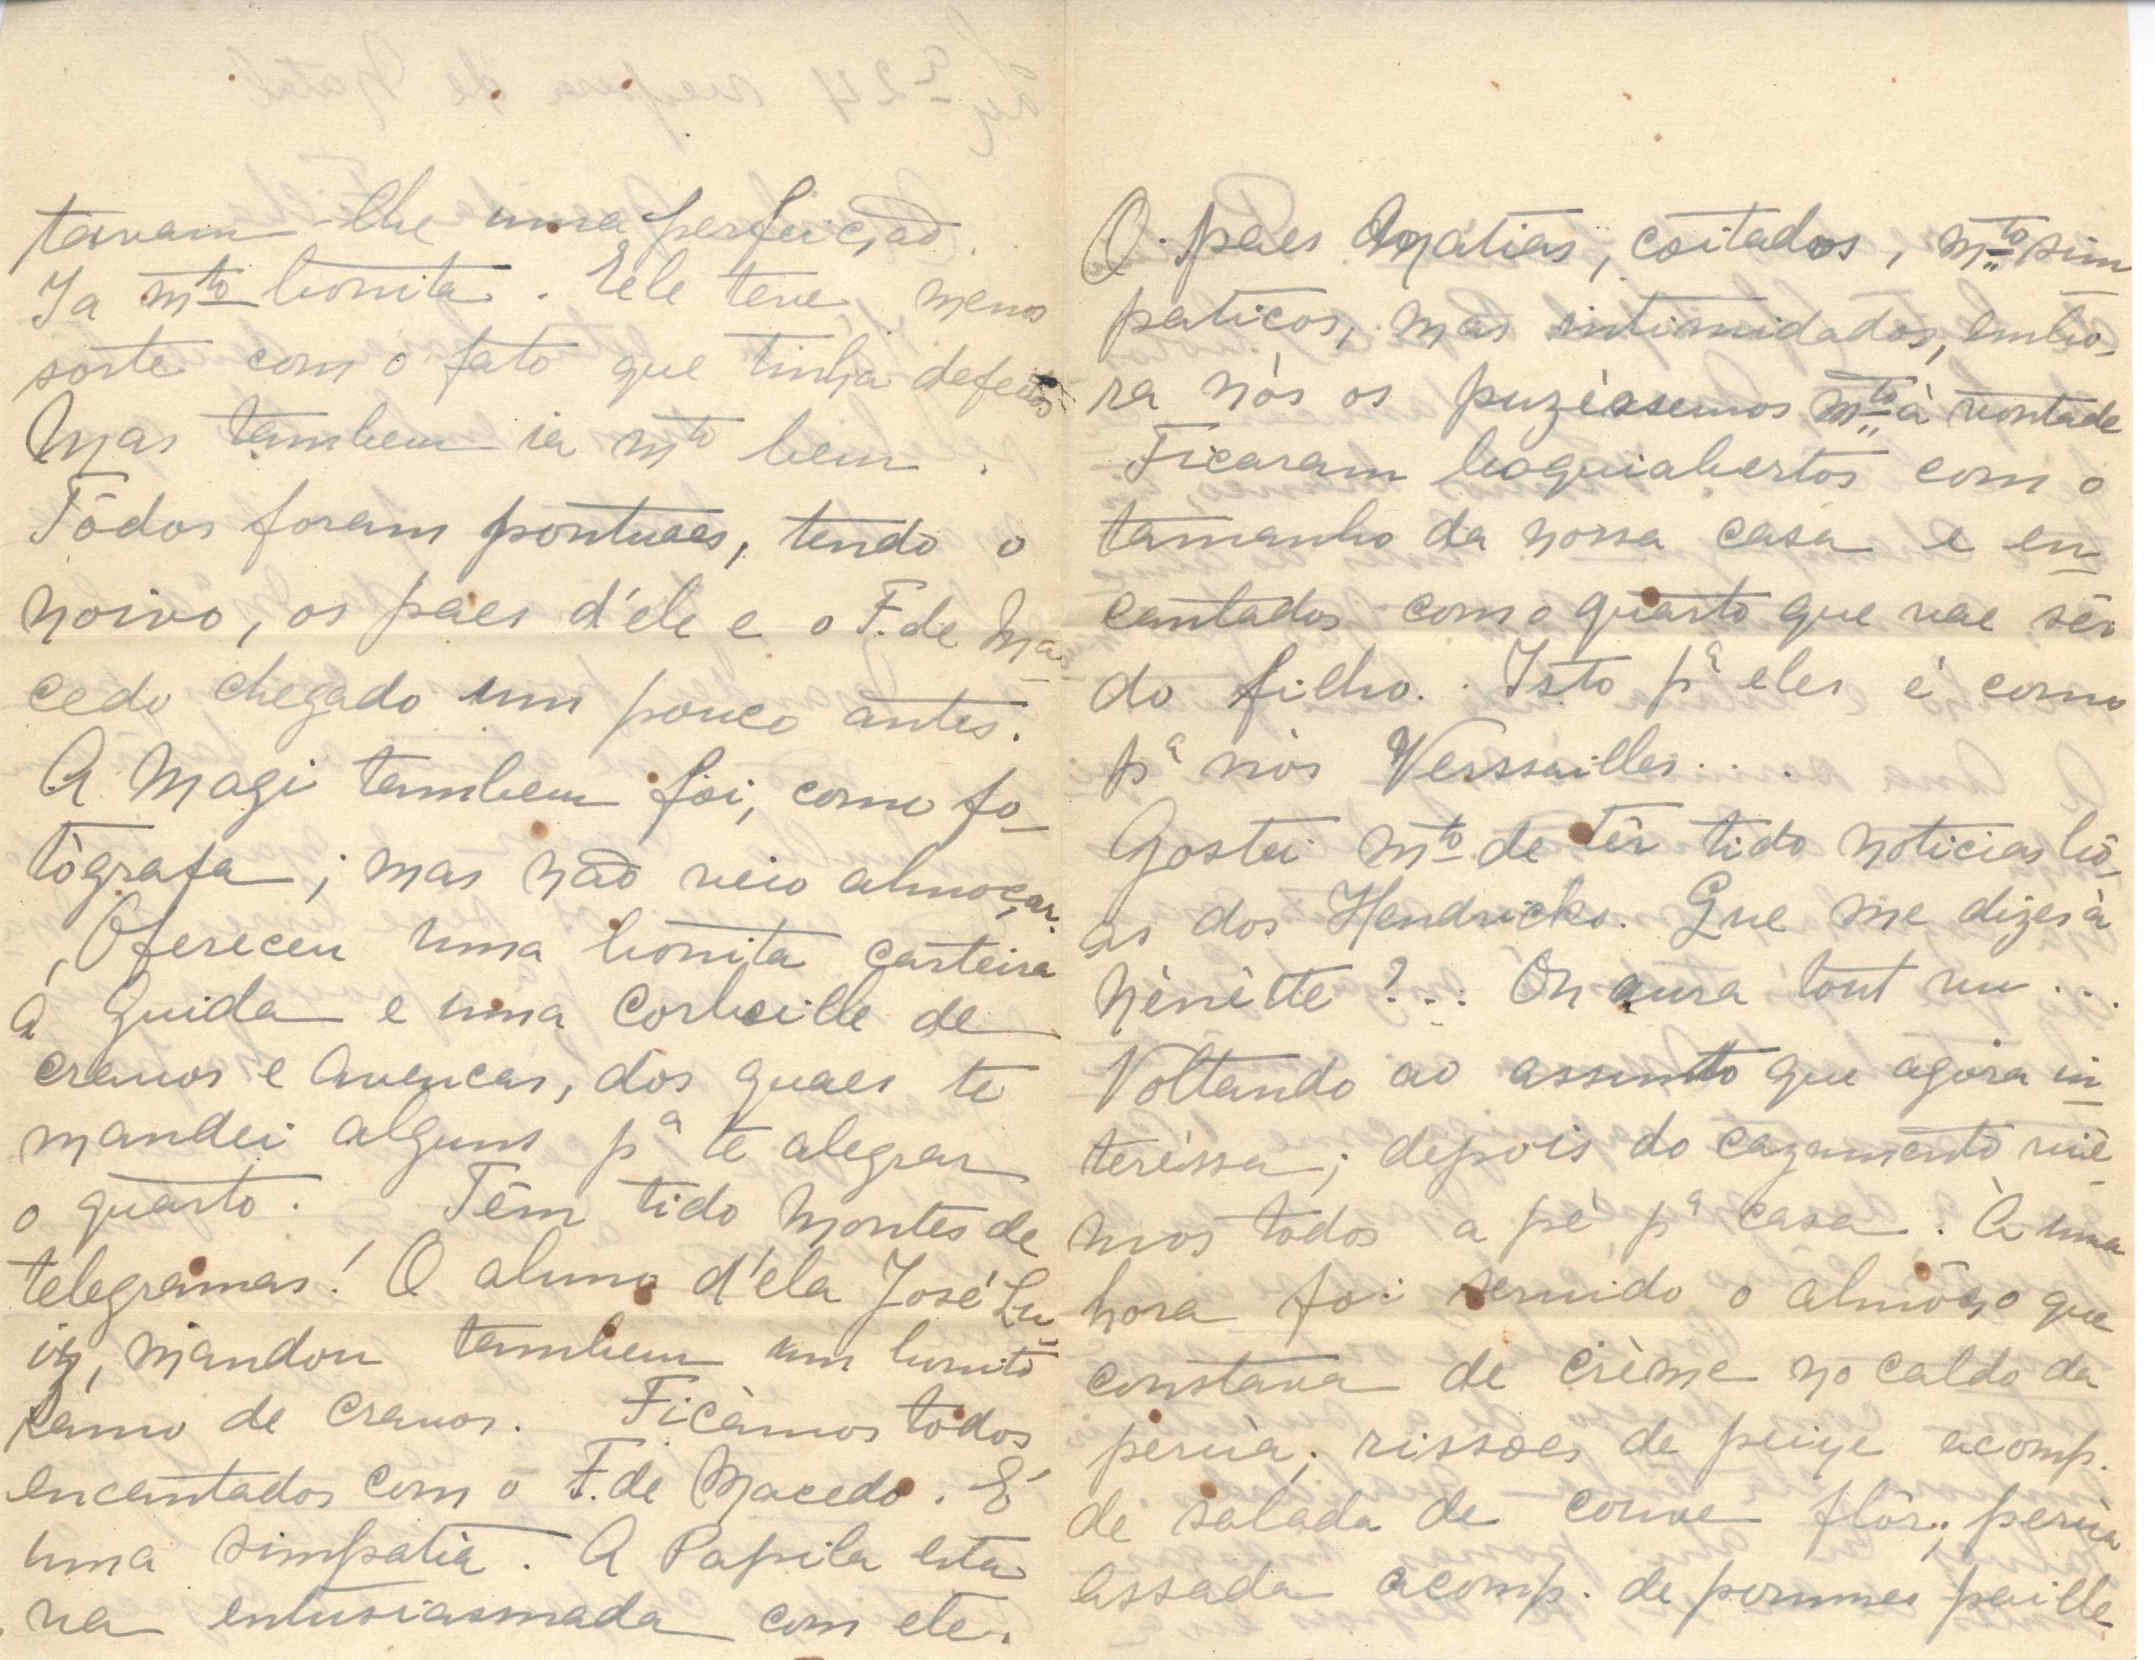 tavam-lhe uma perfeição.
Ia mto bonita. Ele teve menos
sorte com o fato que tinha defeitos
Mas tambem ia mto bem.
Tôdos foram pontuaes, tendo o
noivo, os paes d'ele e o F. de Ma-
cedo chegado um pouco antes.
A Magi tambem foi, como fo-
tògrafa; mas não veio almoçar.
Ofereceu uma bonita carteira
á Guida e uma corbeille de
cravos e avencas, dos quaes te
mandei alguns pa te alegrar
o quarto. Têm tido montes de
telegramas! O aluno d'ela José Lu-
iz, mandou tambem um bonito
ramo de cravos. Ficàmos todos
encantados com o F. de Macedo. É
uma simpatia. A Papila esta-
va entusiasmada com ele.
O. paes Matias, coitados, mto sim
paticos, mas intimidados, embo-
ra nós os puzéssemos mto à vontade
Ficaram boquiabertos com o
tamanho da nossa casa e en-
cantados com o quarto que vae sêr
do filho. Isto pa eles é como
pa nós Verssailles...
Gostei mto de têr tido noticias bô-
as dos Hendricks. Que me dizes à
Nènètte?... On aura tout vu...
Voltando ao assunto que agora in-
teréssa; depois do cazamento viè-
mos todos a pé pa casa. À uma
hora foi servido o almôço que
constava de crème no caldo da
perùa; rissoes de peixe acomp.
de salada de couve flôr; perùa
assada acomp. de pommes paille